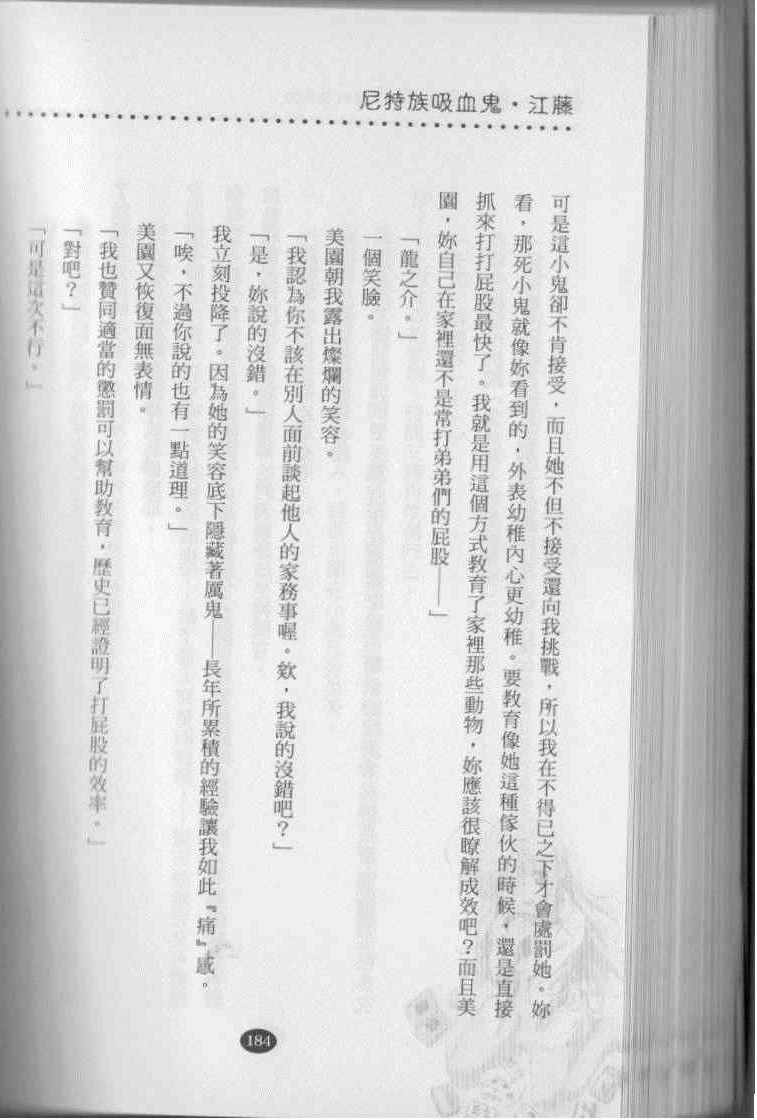 尼特族吸血鬼・江藤
可是這小鬼卻不肯接受，而且她不但不接受還向我挑戰，所以我在不得已之下才會處罰她。妳
看，那死小鬼就像妳看到的，外表幼稚內心更幼稚。要教育像她這種傢伙的時候，還是直接
抓來打打屁股最快了。我就是用這個方式教育了家裡那些動物，妳應該很瞭解成效吧？而且美
園，妳自己在家裡還不是常打弟弟們的屁股——」
「龍之介。」
一個笑臉。
美園朝我露出燦爛的笑容。
「我認為你不該在別人面前談起他人的家務事喔。欸，我說的沒錯吧？」
「是，妳說的沒錯。」
我立刻投降了。因為她的笑容底下隱藏著厲鬼——長年所累積的經驗讓我如此『痛』感。
「唉，不過你說的也有一點道理。」
美園又恢復面無表情。
「我也贊同適當的懲罰可以幫助教育，歷史已經證明了打屁股的效率。」
「對吧？」
「可是這次不行。」
184